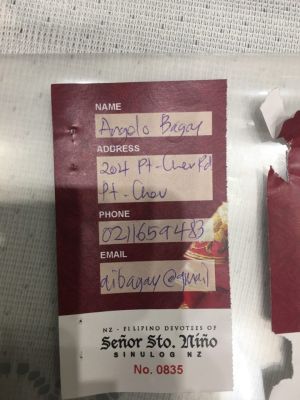 NAME
Angelo Bagay
ADDRESS
204 Pt-Chev Rd
Pt-Chev
PHONE
0211659483
EMAIL
aibagay@gmail
NZ - FILIPINO DEVOTEES OF
Señor Sto. Niño
SINULOG NZ
No. 0835